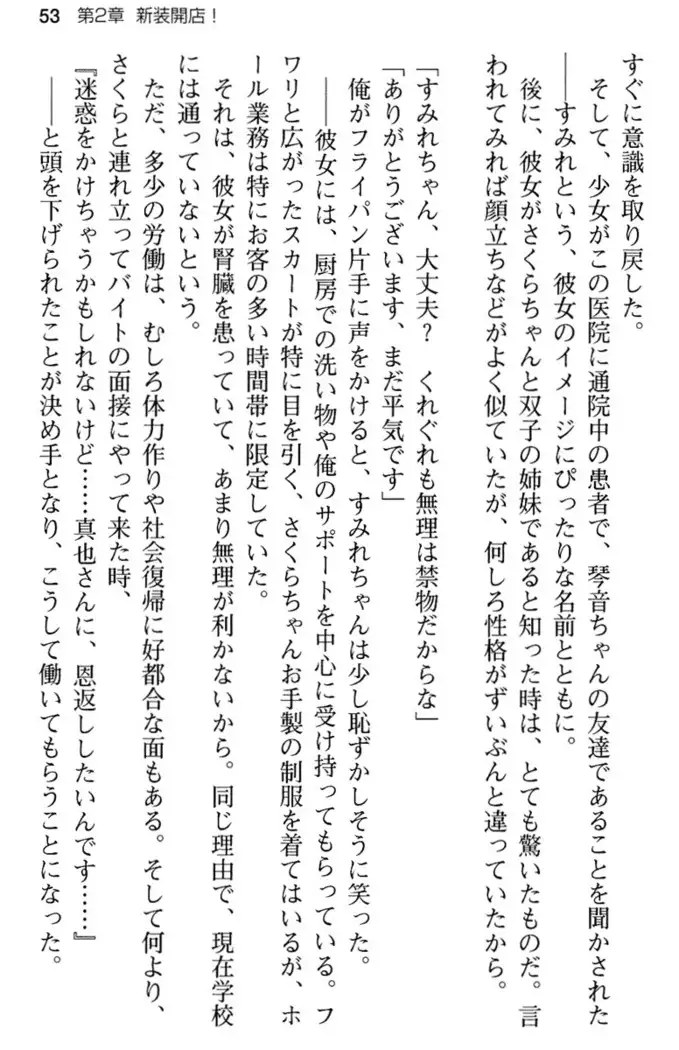 53 第2章 新装開店！
すぐに意識を取り戻した。
　そして、少女がこの医院に通院中の患者で、琴音ちゃんの友達であることを聞かされた
――すみれという、彼女のイメージにぴったりな名前とともに。
　後に、彼女がさくらちゃんと双子の姉妹であると知った時は、とても驚いたものだ。言
われてみれば顔立ちなどがよく似ていたが、何しろ性格がずいぶんと違っていたから。
「すみれちゃん、大丈夫？　くれぐれも無理は禁物だからな」
「ありがとうございます、まだ平気です」
　俺がフライパン片手に声をかけると、すみれちゃんは少し恥ずかしそうに笑った。
　――彼女には、厨房での洗い物や俺のサポートを中心に受け持ってもらっている。フ
ワリと広がったスカートが特に目を引く、さくらちゃんお手製の制服を着てはいるが、ホ
ール業務は特にお客の多い時間帯に限定していた。
　それは、彼女が腎臓を患っていて、あまり無理が利かないから。同じ理由で、現在学校
には通っていないという。
　ただ、多少の労働は、むしろ体力作りや社会復帰に好都合な面もある。そして何より、
さくらと連れ立ってバイトの面接にやって来た時、
『迷惑をかけちゃうかもしれないけど……真也さんに、恩返ししたいんです……』
　――と頭を下げられたことが決め手となり、こうして働いてもらうことになった。